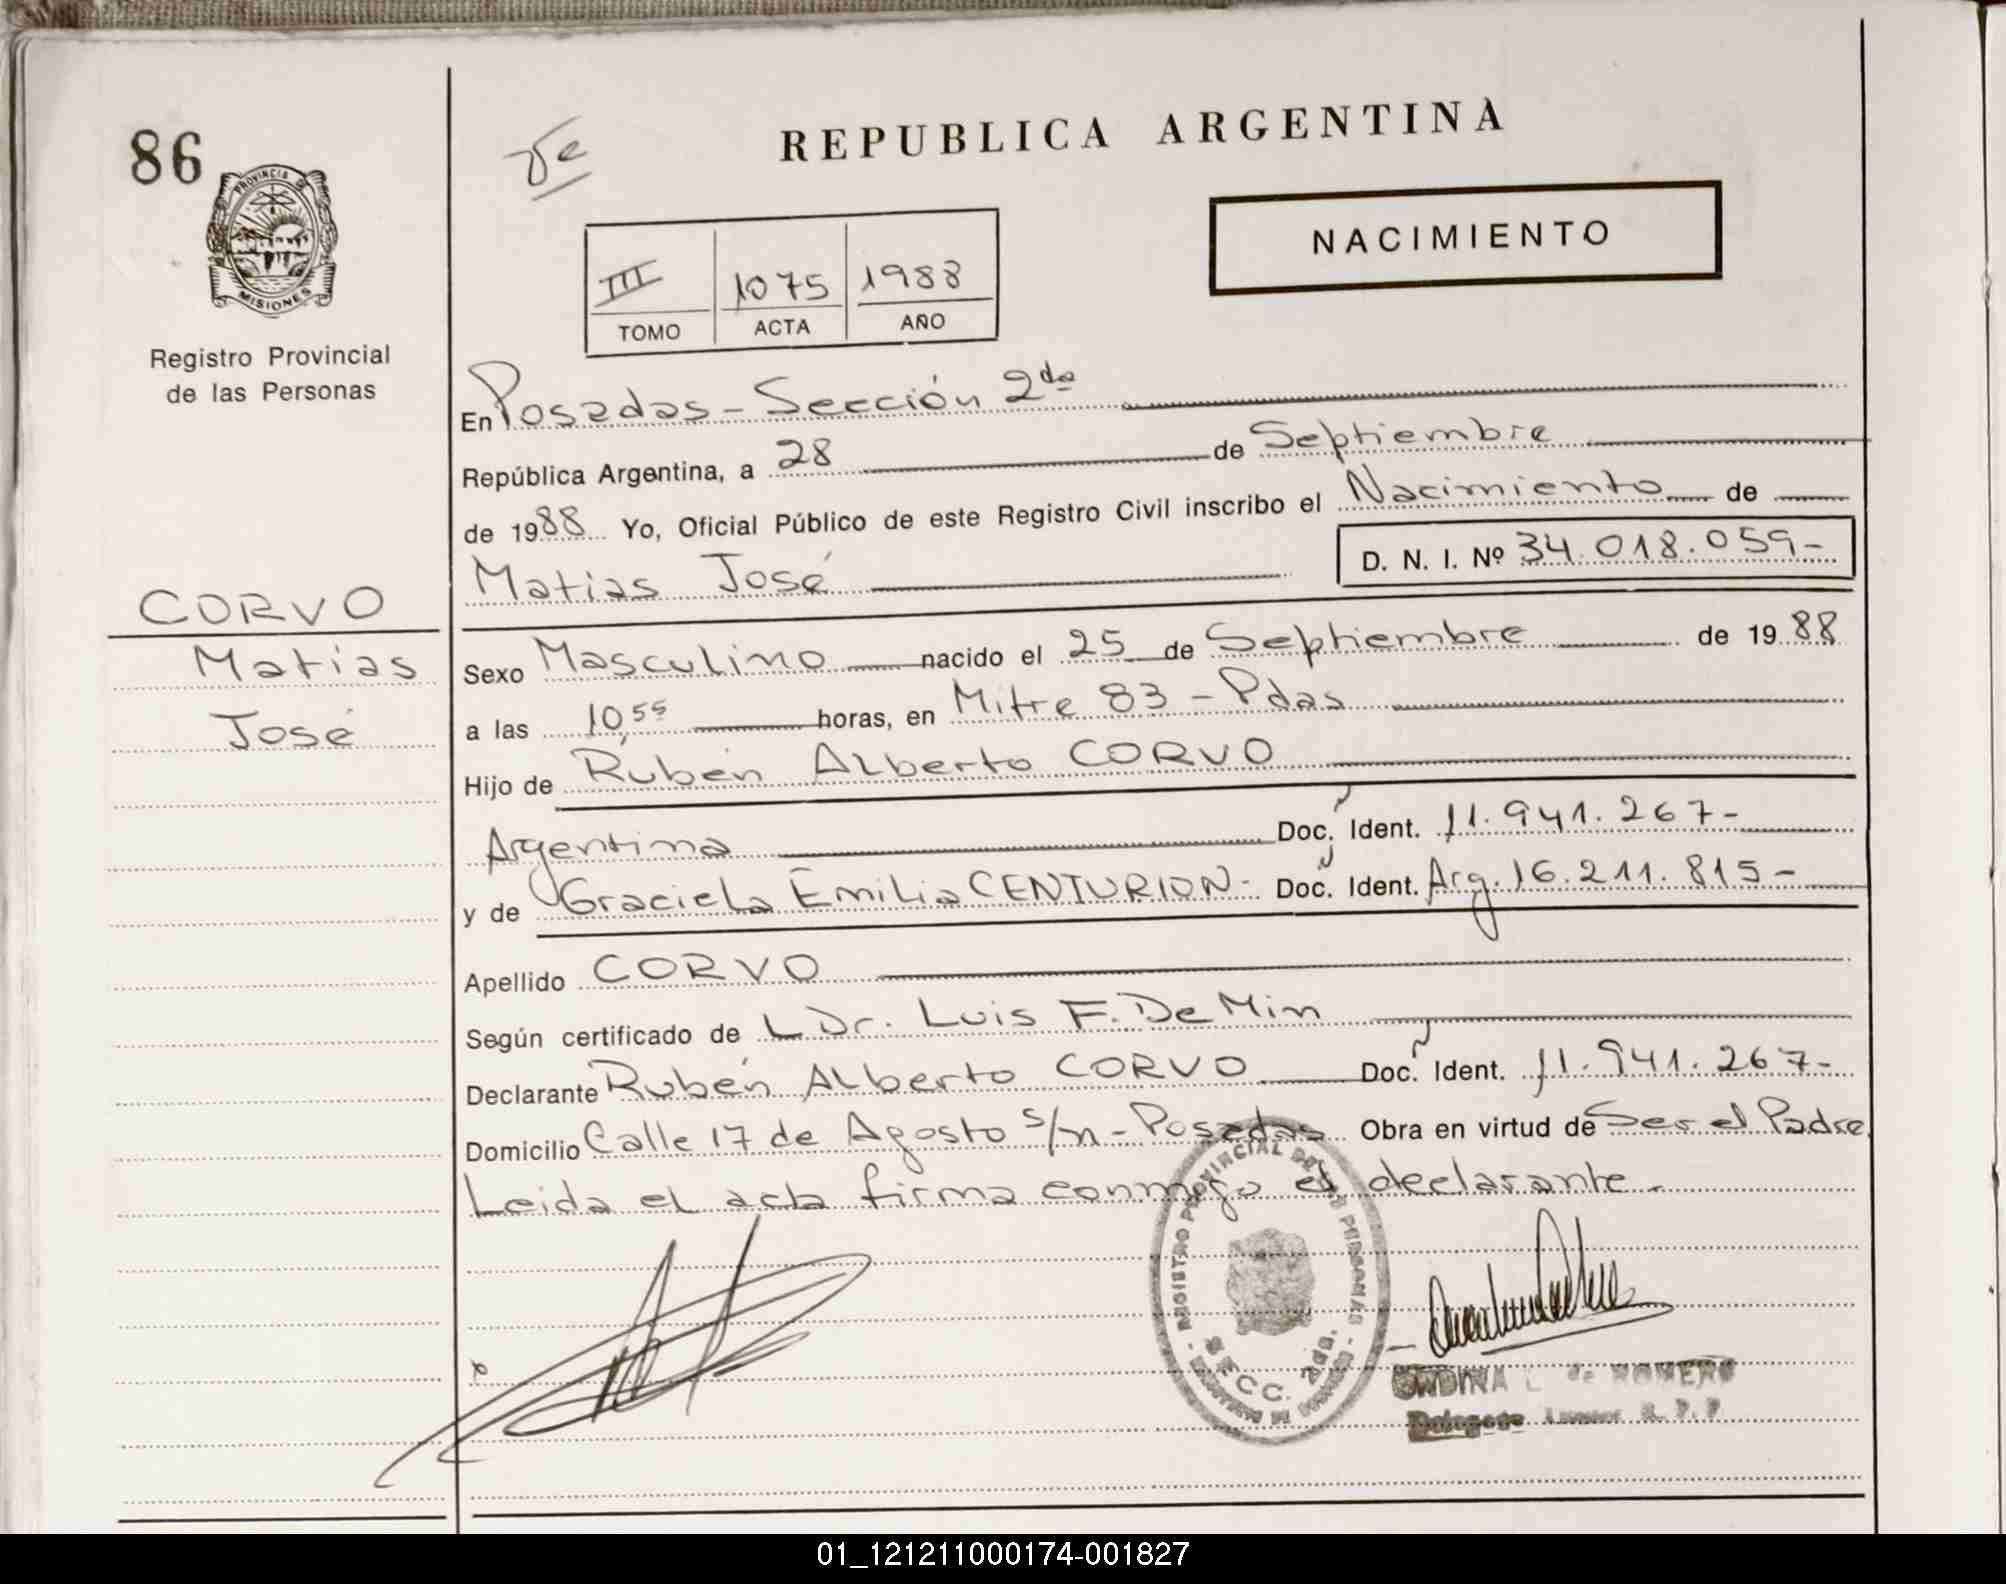 86
PROVINCIA DE
MISIONES
Registro Provincial
de las Personas
CORVO
Matias
José
REPUBLICA ARGENTINA
NACIMIENTO
III 1075 1988
TOMO ACTA AÑO
En Posadas - Sección 2da
República Argentina, a 28 de Septiembre
de 1988 Yo, Oficial Público de este Registro Civil inscribo el Nacimiento de
Matias José D. N. I. Nº 34.018.059-
Sexo Masculino nacido el 25 de Septiembre de 1988
a las 10,55 horas, en Mitre 83 - Pdas
Hijo de Rubén Alberto CORVO
Argentina Doc. Ident. 11.941.267-
y de Graciela Emilia CENTURION- Doc. Ident. Arg. 16.211.815-
Apellido CORVO
Según certificado de L Dr. Luis F. De Min
Declarante Rubén Alberto CORVO Doc. Ident. 11.941.267-
Domicilio Calle 17 de Agosto s/n - Posadas Obra en virtud de Ser el Padre
Leida el acta firma conmigo el declarante.
REGISTRO PROVINCIAL DE LAS PERSONAS
SECC. 2da.
ONDINA L. de ROMERO
Delegada
01_121211000174-001827